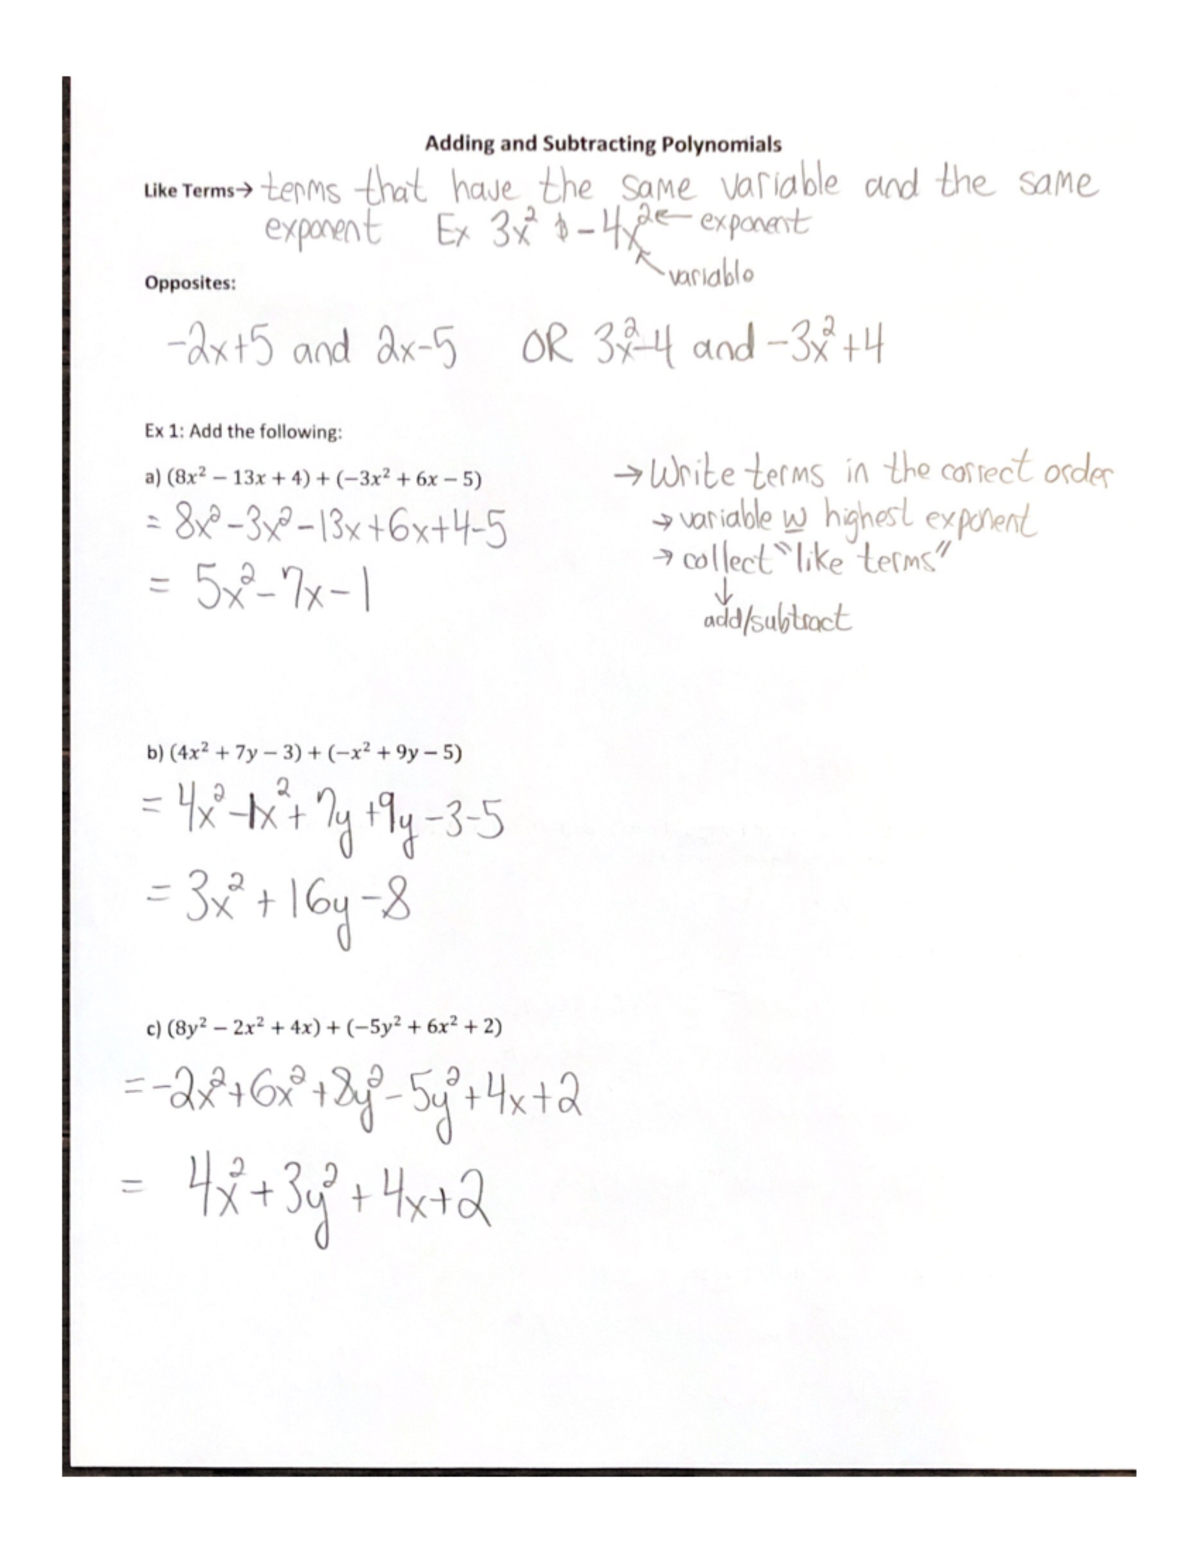 Adding and Subtracting Polynomials
Like Terms→ terms that have the same variable and the same
exponent Ex 3x² & -4x² ← exponent
variable
Opposites:
-2x+5 and 2x-5 OR 3x²-4 and -3x²+4
Ex 1: Add the following:
a) (8x² − 13x + 4) + (−3x² + 6x − 5)
= 8x²-3x²-13x+6x+4-5
= 5x²-7x-1
→ Write terms in the correct order
→ variable w highest exponent
→ collect "like terms"
↓
add/subtract
b) (4x² + 7y − 3) + (−x² + 9y − 5)
= 4x²-1x²+7y+9y-3-5
= 3x²+16y-8
c) (8y² − 2x² + 4x) + (−5y² + 6x² + 2)
=-2x²+6x²+8y²-5y²+4x+2
= 4x²+3y²+4x+2